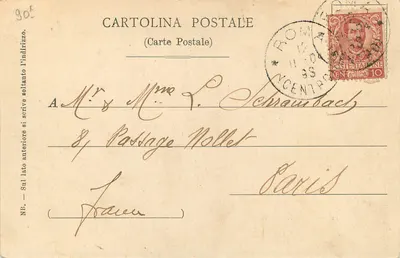 90F
CARTOLINA POSTALE
(Carte Postale)
ROMA
12
(CENTRO)
10
A Mr & Mme L. Schrambach
8, Passage Nollet
Paris
France
NB. - Sul lato anteriore si scrive soltanto l'indirizzo.